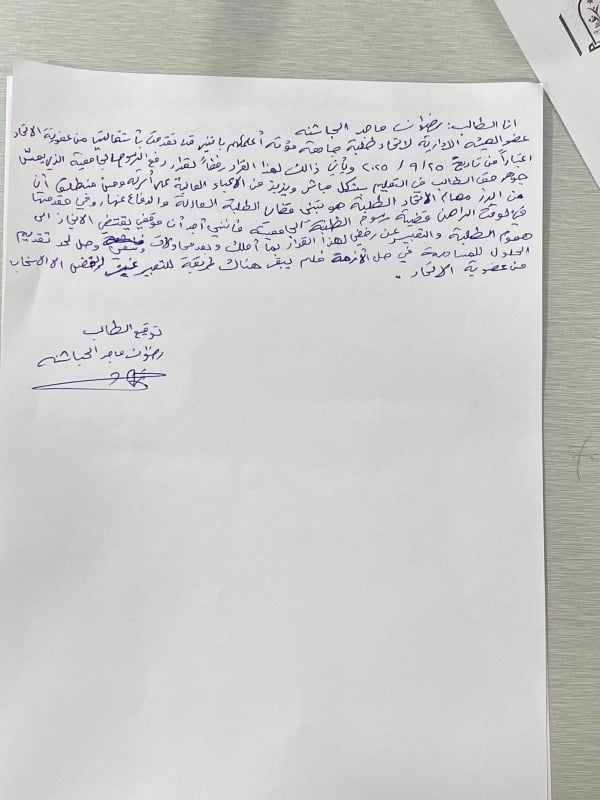 انا الطالب: رضوان ماجد الحباشنه
عضو الهيئه الادارية لاتحاد طلبة جامعة مؤته أعلمكم بانني قد تقدمت بأستقالتي من عضوية الاتحاد
اعتباراً من تاريخ ٢٥ / ٩ / ٢٠٢٥ ويأتي ذالك لهذا القرار رفضاً لقرار رفع الرسوم الجامعية الذي يمس
جوهر حق الطالب في التعليم بشكل مباشر ويزيد من الاعباء المالية على أسرته ومن منطلق أن
من ابرز مهام الاتحاد الطلبة هو تبني قضايا الطلبة العادلة والدفاع عنها وفي مقدمتها
في الوقت الراهن قضية رسوم الطلبة الجامعية فإنني أجد أن موقفي يقتضي الانحياز الى
هموم الطلبة والتعبير عن رفضي لهذا القرار بما أملك وبعد محاولات وصل لحد تقديم
الحلول للمساهمة في حل الأزمة فلم يبقى هناك طريقة للتعبير عن الرفض الا الانسحاب
من عضوية الاتحاد .
توقيع الطالب
رضوان ماجد الحباشنه